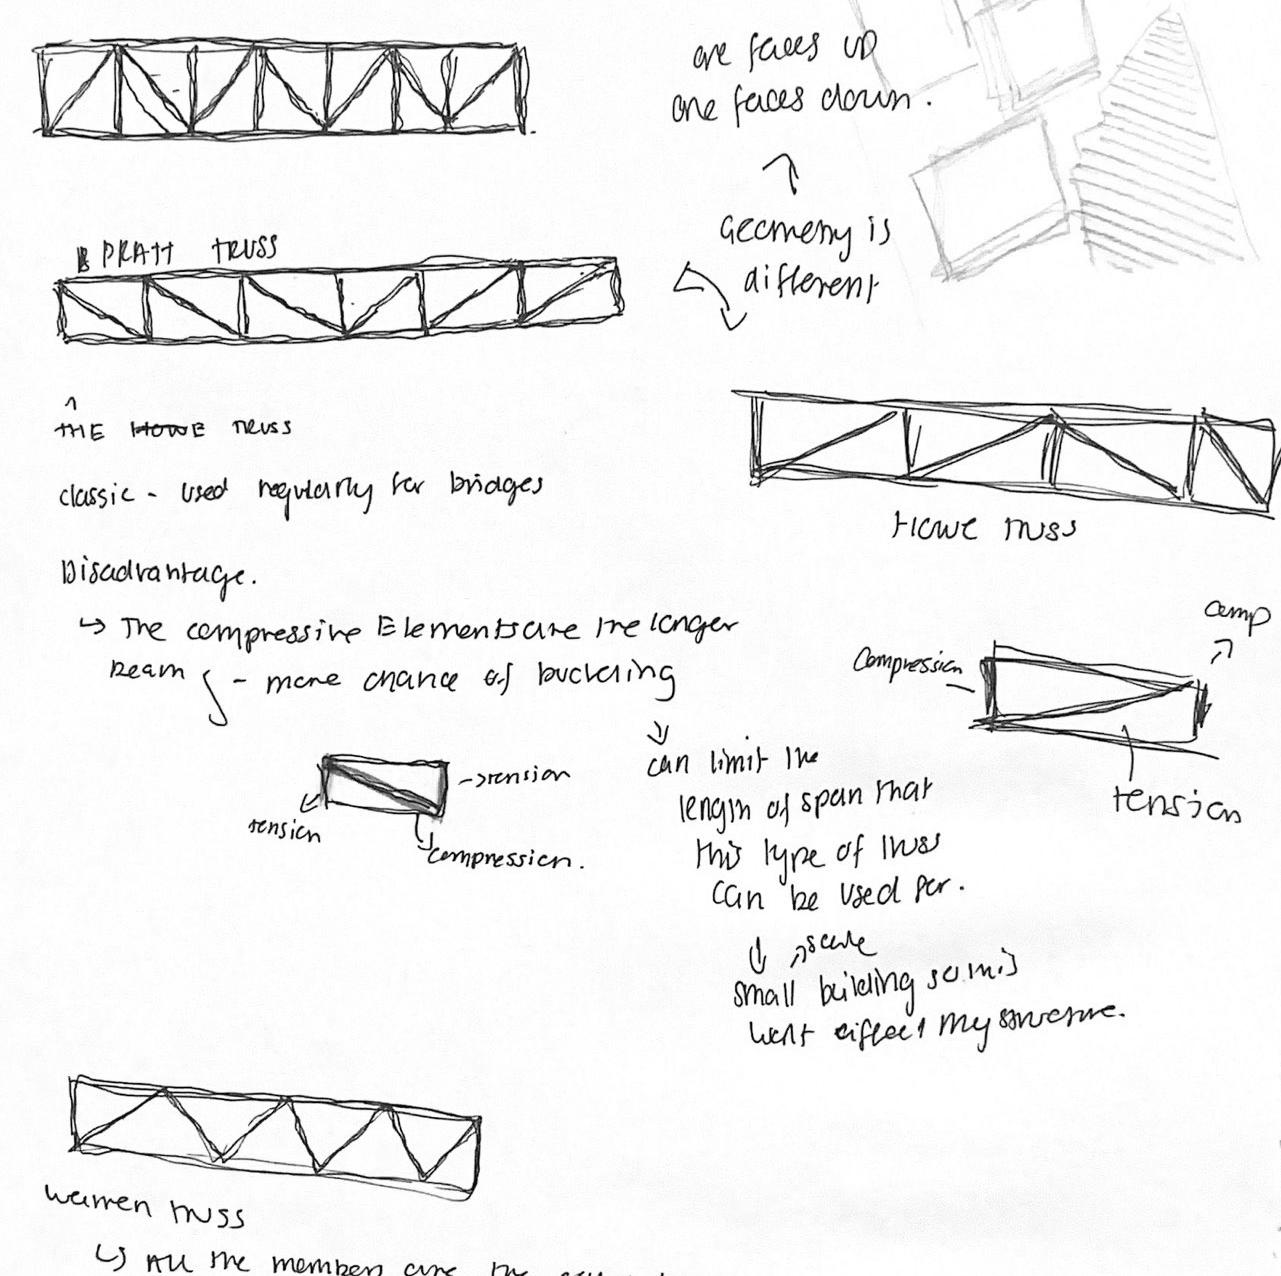 one faces up
one faces down.
Geometry is
different
PRATT TRUSS
THE HOWE TRUSS
classic - used regularly for bridges
Howe truss
Disadvantage.
↳ The compressive Elements are the longer
Beam - more chance of buckling
can limit the
length of span that
this type of truss
can be used for.
scale
small building so this
won't effect my structure.
→ tension
tension
compression.
Compression
comp
tension
Warren truss
↳ All the members are the